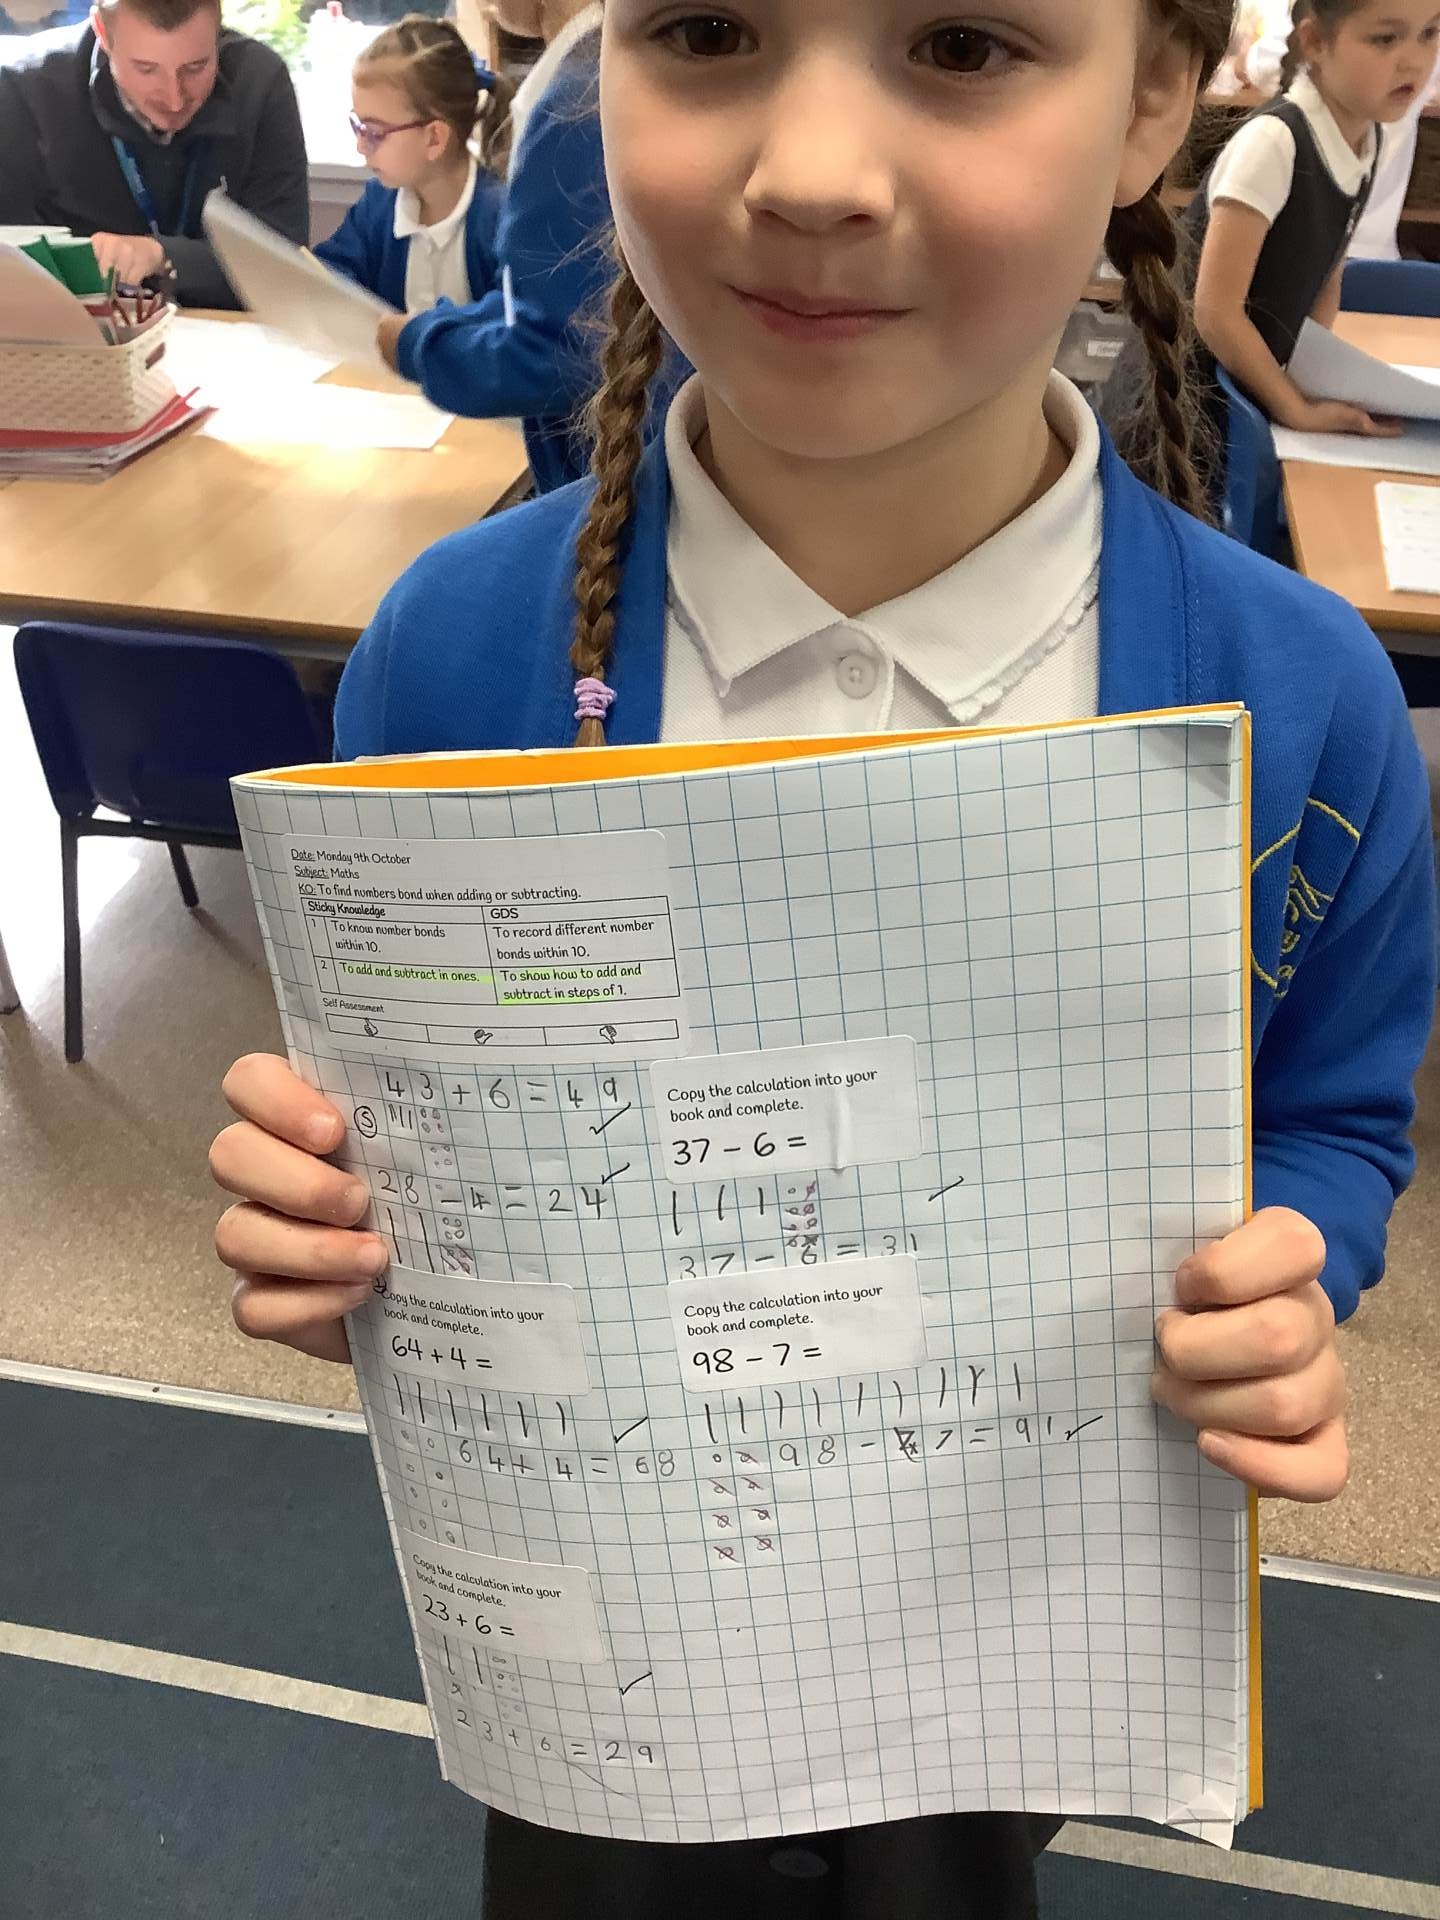 Date: Monday 9th October
Subject: Maths
KO: To find numbers bond when adding or subtracting.
Sticky Knowledge GDS
1 To know number bonds within 10. To record different number bonds within 10.
2 To add and subtract in ones. To show how to add and subtract in steps of 1.
Self Assessment
43 + 6 = 49
S
28 - 4 = 24
Copy the calculation into your
book and complete.
37 - 6 =
37 - 6 = 31
Copy the calculation into your
book and complete.
64 + 4 =
64 + 4 = 68
Copy the calculation into your
book and complete.
98 - 7 =
98 - 7 = 91
Copy the calculation into your
book and complete.
23 + 6 =
23 + 6 = 29